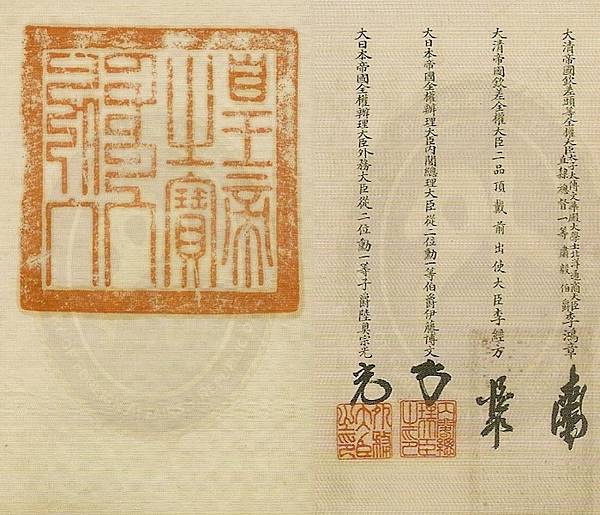 大清帝國欽差頭等全權大臣太子太傅文華殿大學士北洋通商大臣直隸總督一等肅毅伯爵李鴻章
大清帝國欽差全權大臣二品頂戴前出使大臣李經方
大日本帝國全權辦理大臣內閣總理大臣從二位勳一等伯爵伊藤博文
大日本帝國全權辦理大臣外務大臣從二位勳一等子爵陸奧宗光
內閣總理大臣之印
外務大臣之印
皇帝之寶